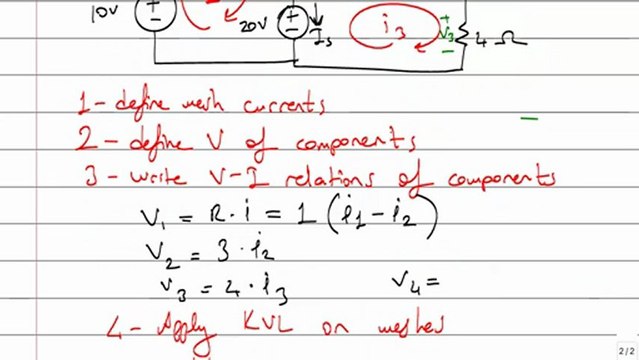 10V
20V
Is
i3
+
V3
-
4 Ω
1 - define mesh currents
2 - define V of components
3 - write V-I relations of components
V1 = R · i = 1 (i1 - i2)
V2 = 3 · i2
V3 = 4 · i3 V4 =
4 - Apply KVL on meshes
2/2